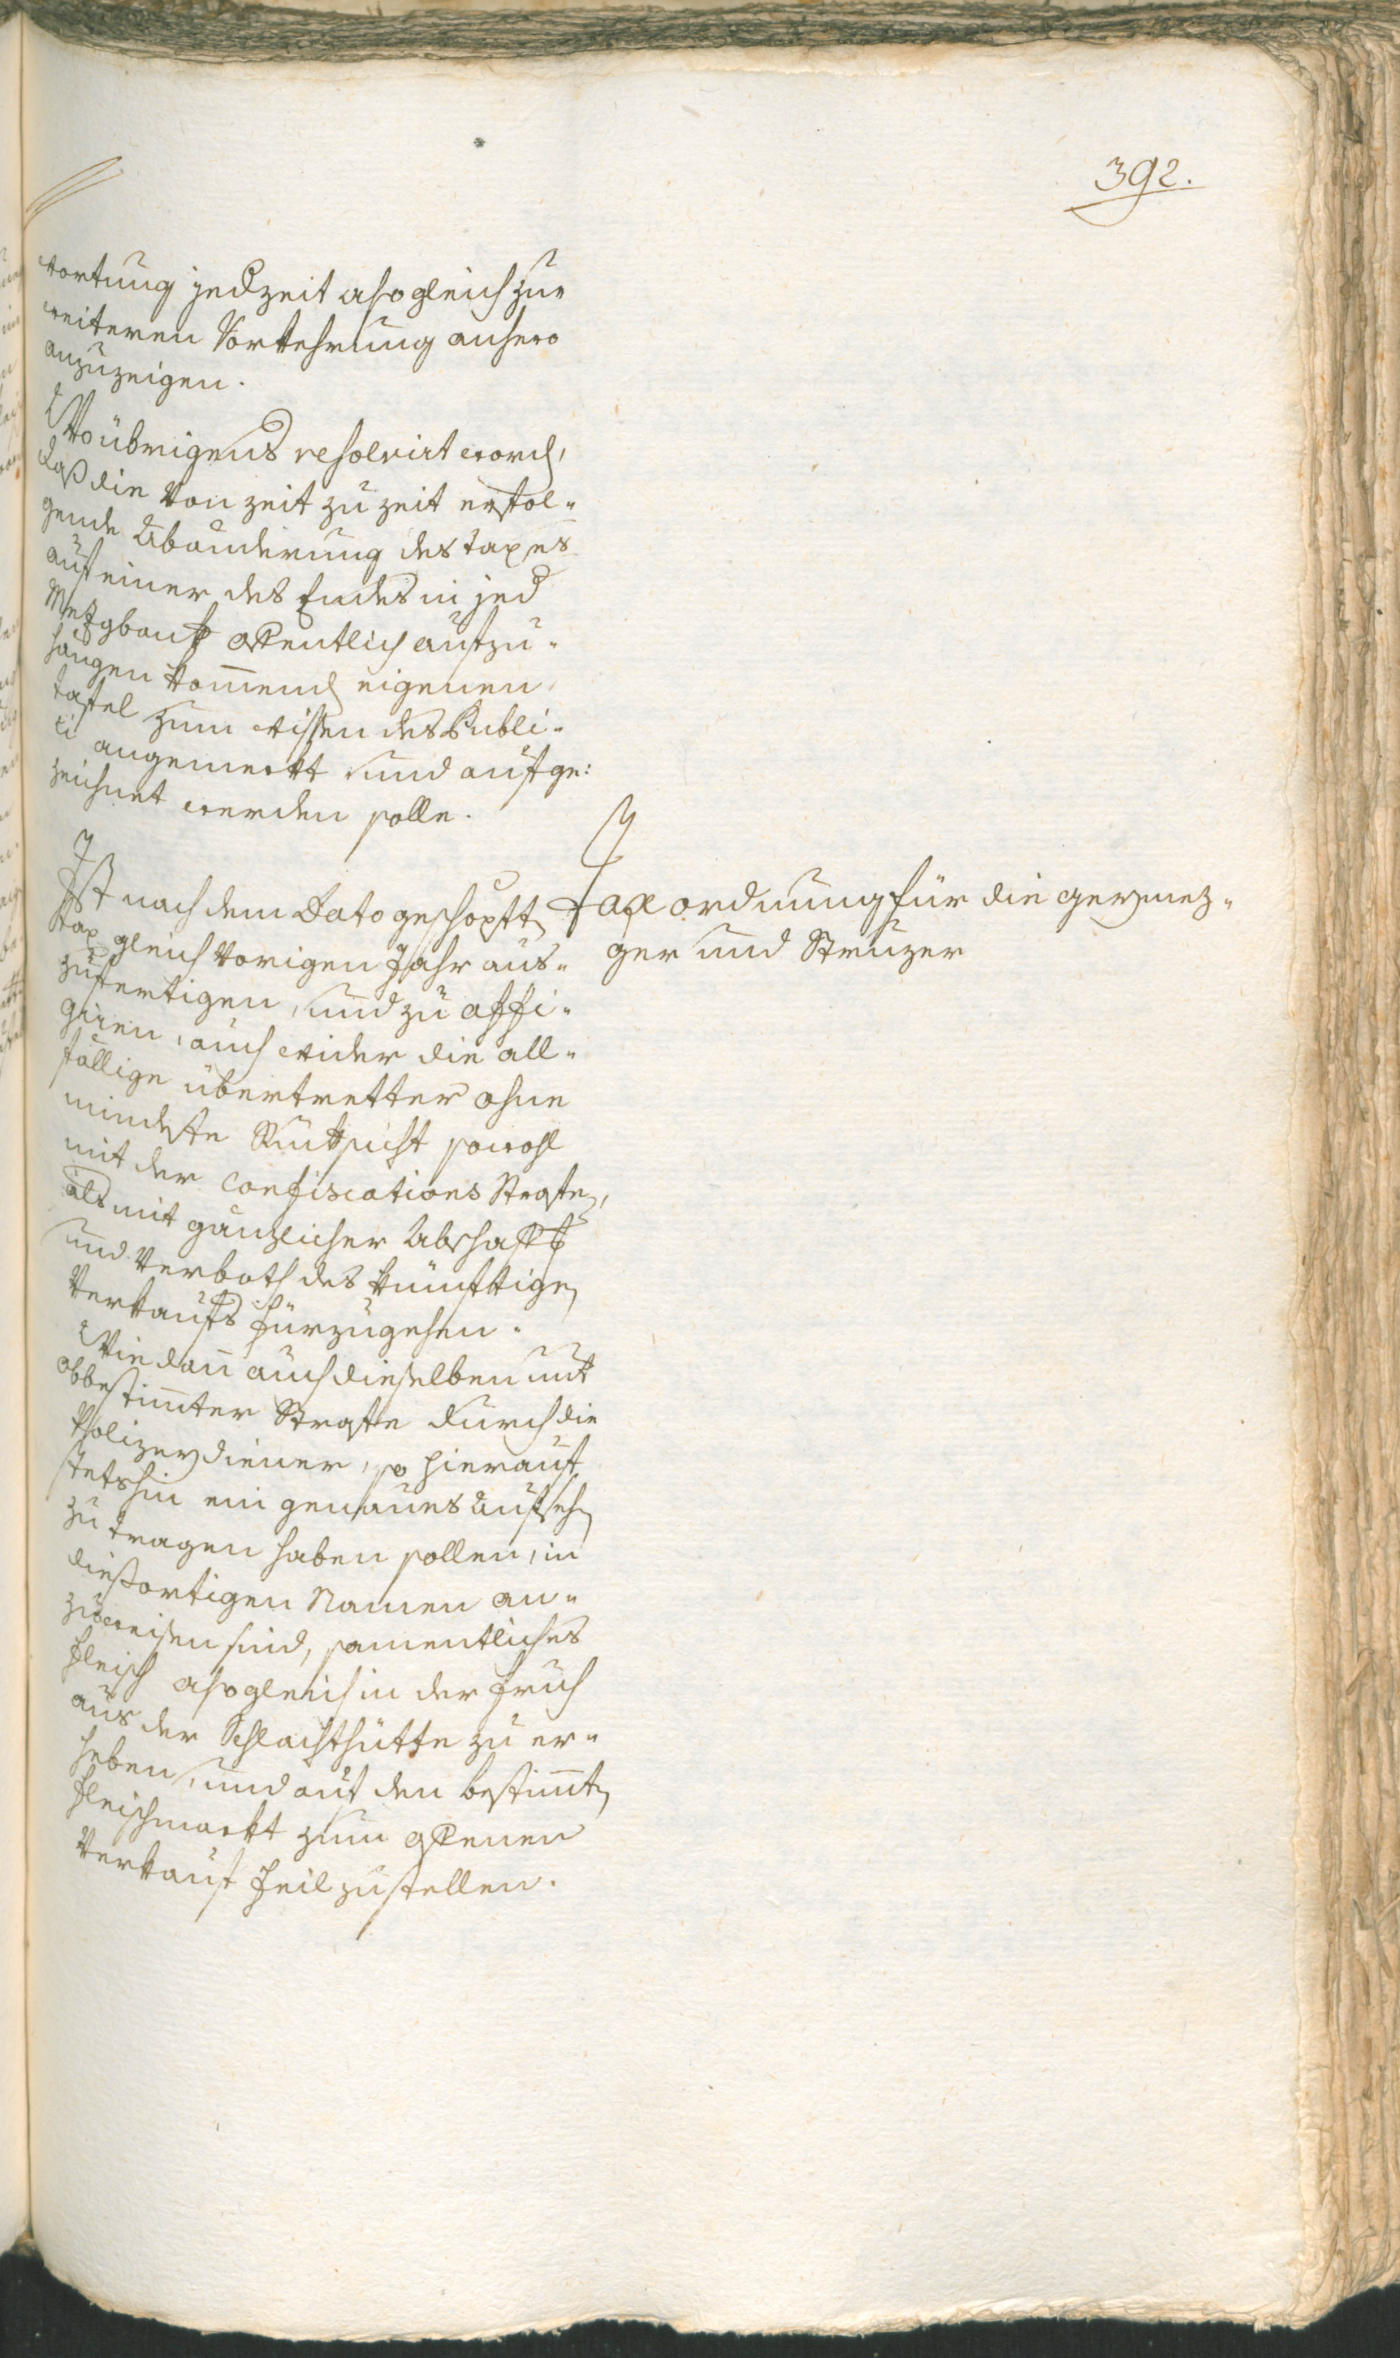 392.
wortung jedzeit also gleich zur
weiteren Vorkehrung anhero
anzuzeigen.
Wo übrigens resolvirt word,
daß die von zeit zu zeit erfol-
gende Abänderung des taxes
auf einer des Endes in jed
Metzgbank offentlich aufzu-
hängen komend eigenen
tafel zum wissen des Publi-
ci angemerkt und aufge:
zeichnet werden solle.
Ist nach dem Dato geschöpften
tax gleich vorigen Jahr aus-
zufertigen, und zu affi-
giren, auch wider die all-
fällige übertretter ohne
mindeste Rücksicht sowohl
mit der Confiscations Strafe,
als mit gänzlicher Abschaff
und verboth des künftigen
Verkaufs fürzugehen.
Wie dan auch dieselben mit
obbestimter Strafe durch die
Polizeydiener, so hierauf
stetshin ein genaues Aufsehen
zu tragen haben sollen, in
diesortigen Namen an-
zuweisen sind, samentliches
Fleisch also gleich in der Fruh
aus der Schlachthütte zu er-
heben, und auf den bestimten
Fleischmarkt zum offenen
Verkauf feil zustellen.
Tax ordnung für die geymez-
ger und Struzer